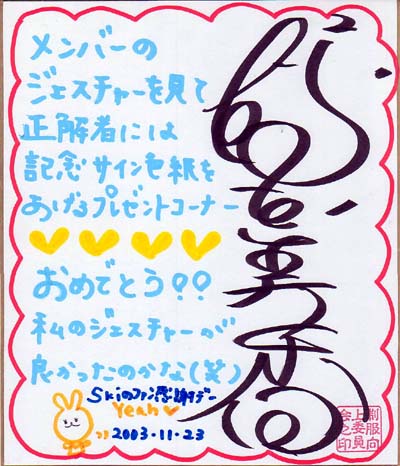 メンバーの
ジェスチャーを見て
正解者には
記念サイン色紙を
あげるプレゼントコーナー
おめでとう??
私のジェスチャーが
良かったのかな(笑)
SKiのファン感謝デー
Yeah
2003・11・23
制服向
上委員
会之印